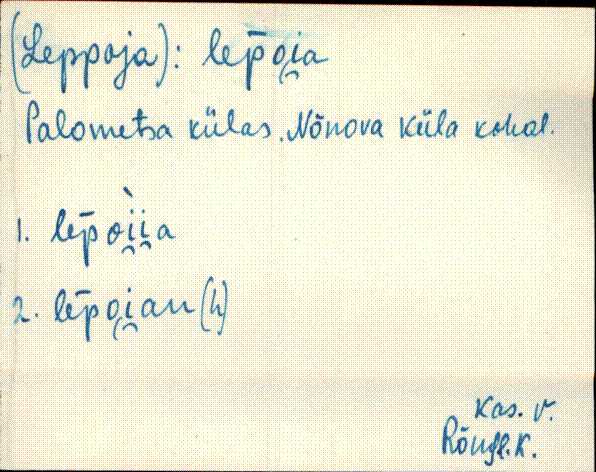 (Leppoja): lep̄oi̯a
Palometsa külas. Nõnova küla kohal.
1. lep̄oi̯i̯a
2. lep̄oi̯an(h)
Kas. v.